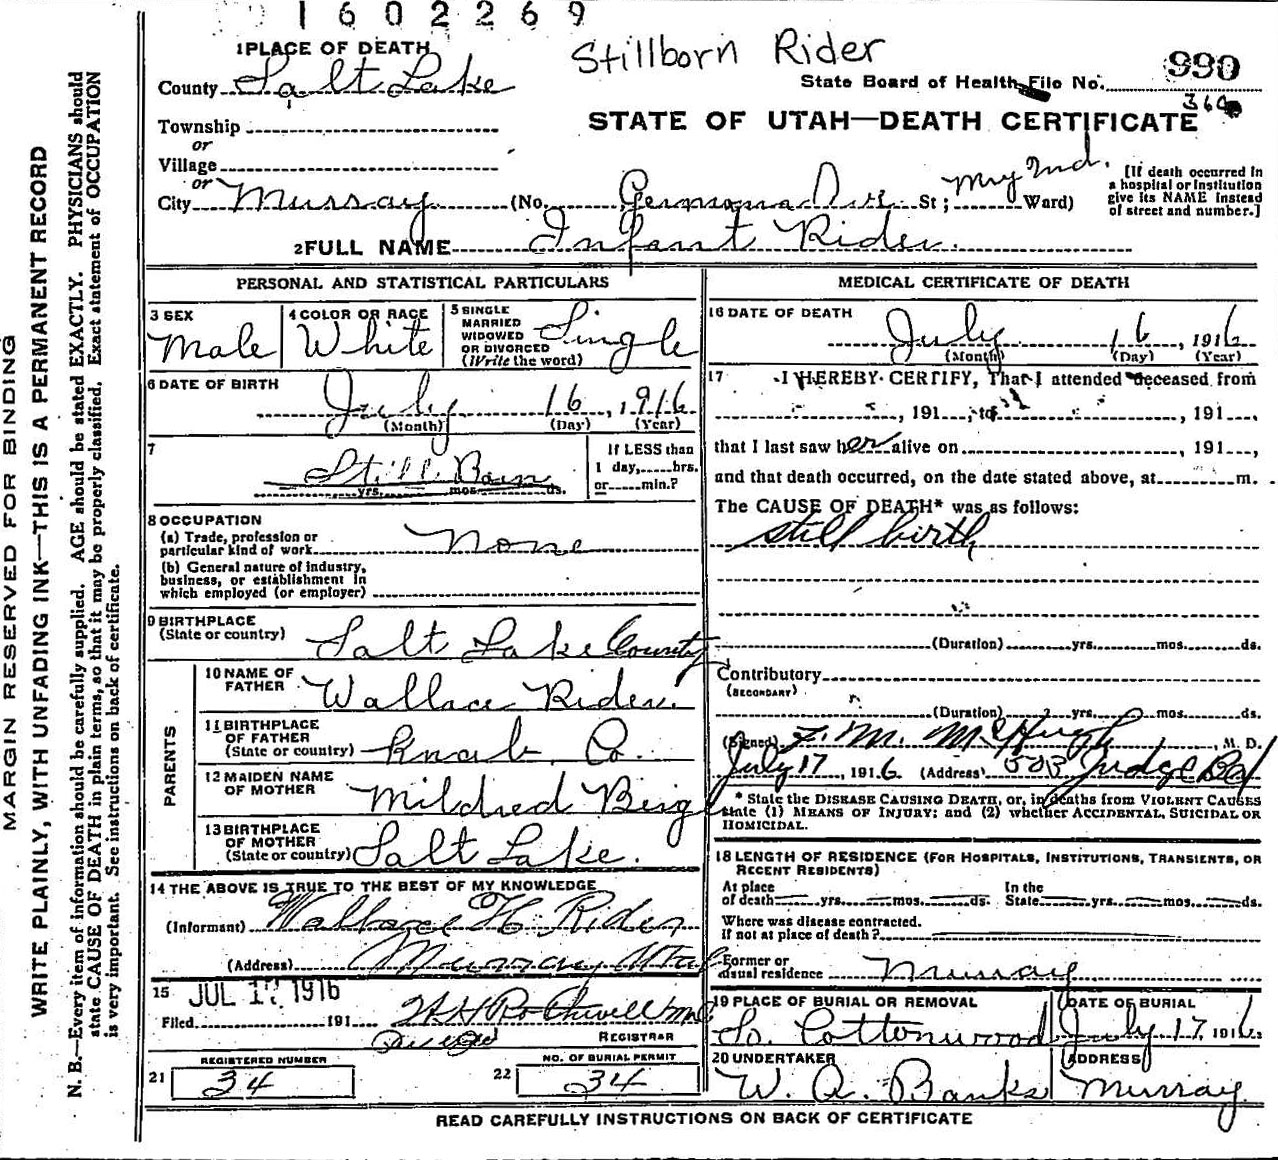 1602269
Stillborn Rider
1 PLACE OF DEATH
County Salt Lake
State Board of Health File No. 990
364
Township
or
Village
or
City Murray (No. Germania Ave St; 2nd. Ward)
STATE OF UTAH—DEATH CERTIFICATE
[If death occurred in
a hospital or institution
give its NAME instead
of street and number.]
2 FULL NAME Infant Rider.
PERSONAL AND STATISTICAL PARTICULARS
3 SEX
Male
4 COLOR OR RACE
White
5 SINGLE
MARRIED
WIDOWED
OR DIVORCED
(Write the word)
Single
6 DATE OF BIRTH
July 16, 1916
(Month) (Day) (Year)
7
Still Born
yrs. mos. ds.
If LESS than
1 day, hrs.
or min.?
8 OCCUPATION
(a) Trade, profession or
particular kind of work None
(b) General nature of industry,
business, or establishment in
which employed (or employer)
9 BIRTHPLACE
(State or country) Salt Lake County
PARENTS
10 NAME OF
FATHER Wallace Rider.
11 BIRTHPLACE
OF FATHER
(State or country) Knab Co.
12 MAIDEN NAME
OF MOTHER Mildred
13 BIRTHPLACE
OF MOTHER
(State or country) Salt Lake.
14 THE ABOVE IS TRUE TO THE BEST OF MY KNOWLEDGE
(Informant) Wallace H. Rider
(Address) Murray Utah
15 JUL 17 1916
Filed 191
H H Rothwell
REGISTRAR
REGISTERED NUMBER
21 34
NO. OF BURIAL PERMIT
22 34
MEDICAL CERTIFICATE OF DEATH
16 DATE OF DEATH
July 16 1916
(Month) (Day) (Year)
17 I HEREBY CERTIFY, That I attended deceased from
, 191 , to , 191 ,
that I last saw her alive on 191 ,
and that death occurred, on the date stated above, at m.
The CAUSE OF DEATH* was as follows:
still birth
(Duration) yrs. mos. ds.
Contributory
(SECONDARY)
(Duration) yrs. mos. ds.
(Signed) F. M. McHugh, M. D.
July 17, 1916 (Address) 503 Judge Bld
* State the DISEASE CAUSING DEATH, or, in deaths from VIOLENT CAUSES
state (1) MEANS OF INJURY; and (2) whether ACCIDENTAL, SUICIDAL OR
HOMICIDAL.
18 LENGTH OF RESIDENCE (FOR HOSPITALS, INSTITUTIONS, TRANSIENTS, OR
RECENT RESIDENTS)
At place
of death yrs. mos. ds.
In the
State yrs. mos. ds.
Where was disease contracted.
If not at place of death?
Former or
usual residence Murray
19 PLACE OF BURIAL OR REMOVAL
So. Cottonwood
DATE OF BURIAL
July 17, 1916
20 UNDERTAKER
W. A. Banks
ADDRESS
Murray
READ CAREFULLY INSTRUCTIONS ON BACK OF CERTIFICATE
MARGIN RESERVED FOR BINDING
WRITE PLAINLY, WITH UNFADING INK—THIS IS A PERMANENT RECORD
N. B.—Every item of information should be carefully supplied. AGE should be stated EXACTLY. PHYSICIANS should
state CAUSE OF DEATH in plain terms, so that it may be properly classified. Exact statement of OCCUPATION
is very important. See instructions on back of certificate.